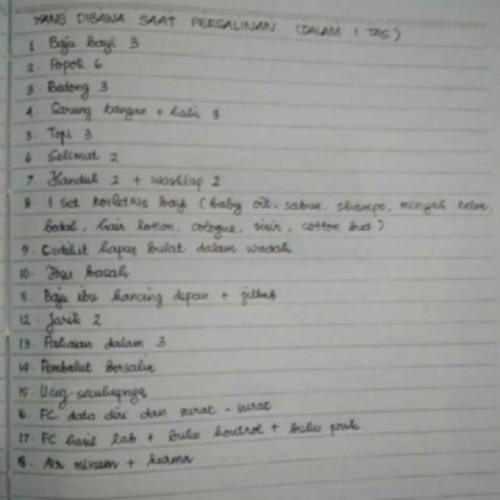 YANG DIBAWA SAAT PERSALINAN (DALAM 1 TAS)
1. Baju bayi 3
2. Popok 6
3. Bedong 3
4. Sarung tangan + kaki 3
5. Topi 3
6. Selimut 2
7. Handuk 2 + washlap 2
8. 1 Set toiletris bayi (baby oil, sabun, shampo, minyak telon,
bedak, hair lotion, cologne, sisir, cotton bud)
9. Sedikit kapas bulat dalam wadah
10. Tisu basah
11. Baju ibu kancing depan + jilbab
12. Jarik 2
13. Pakaian dalam 3
14. Pembalut bersalin
15. Uang secukupnya
16. FC data diri dan surat-surat
17. FC hasil lab + buku kontrol + buku pink
18. Air minum + kurma